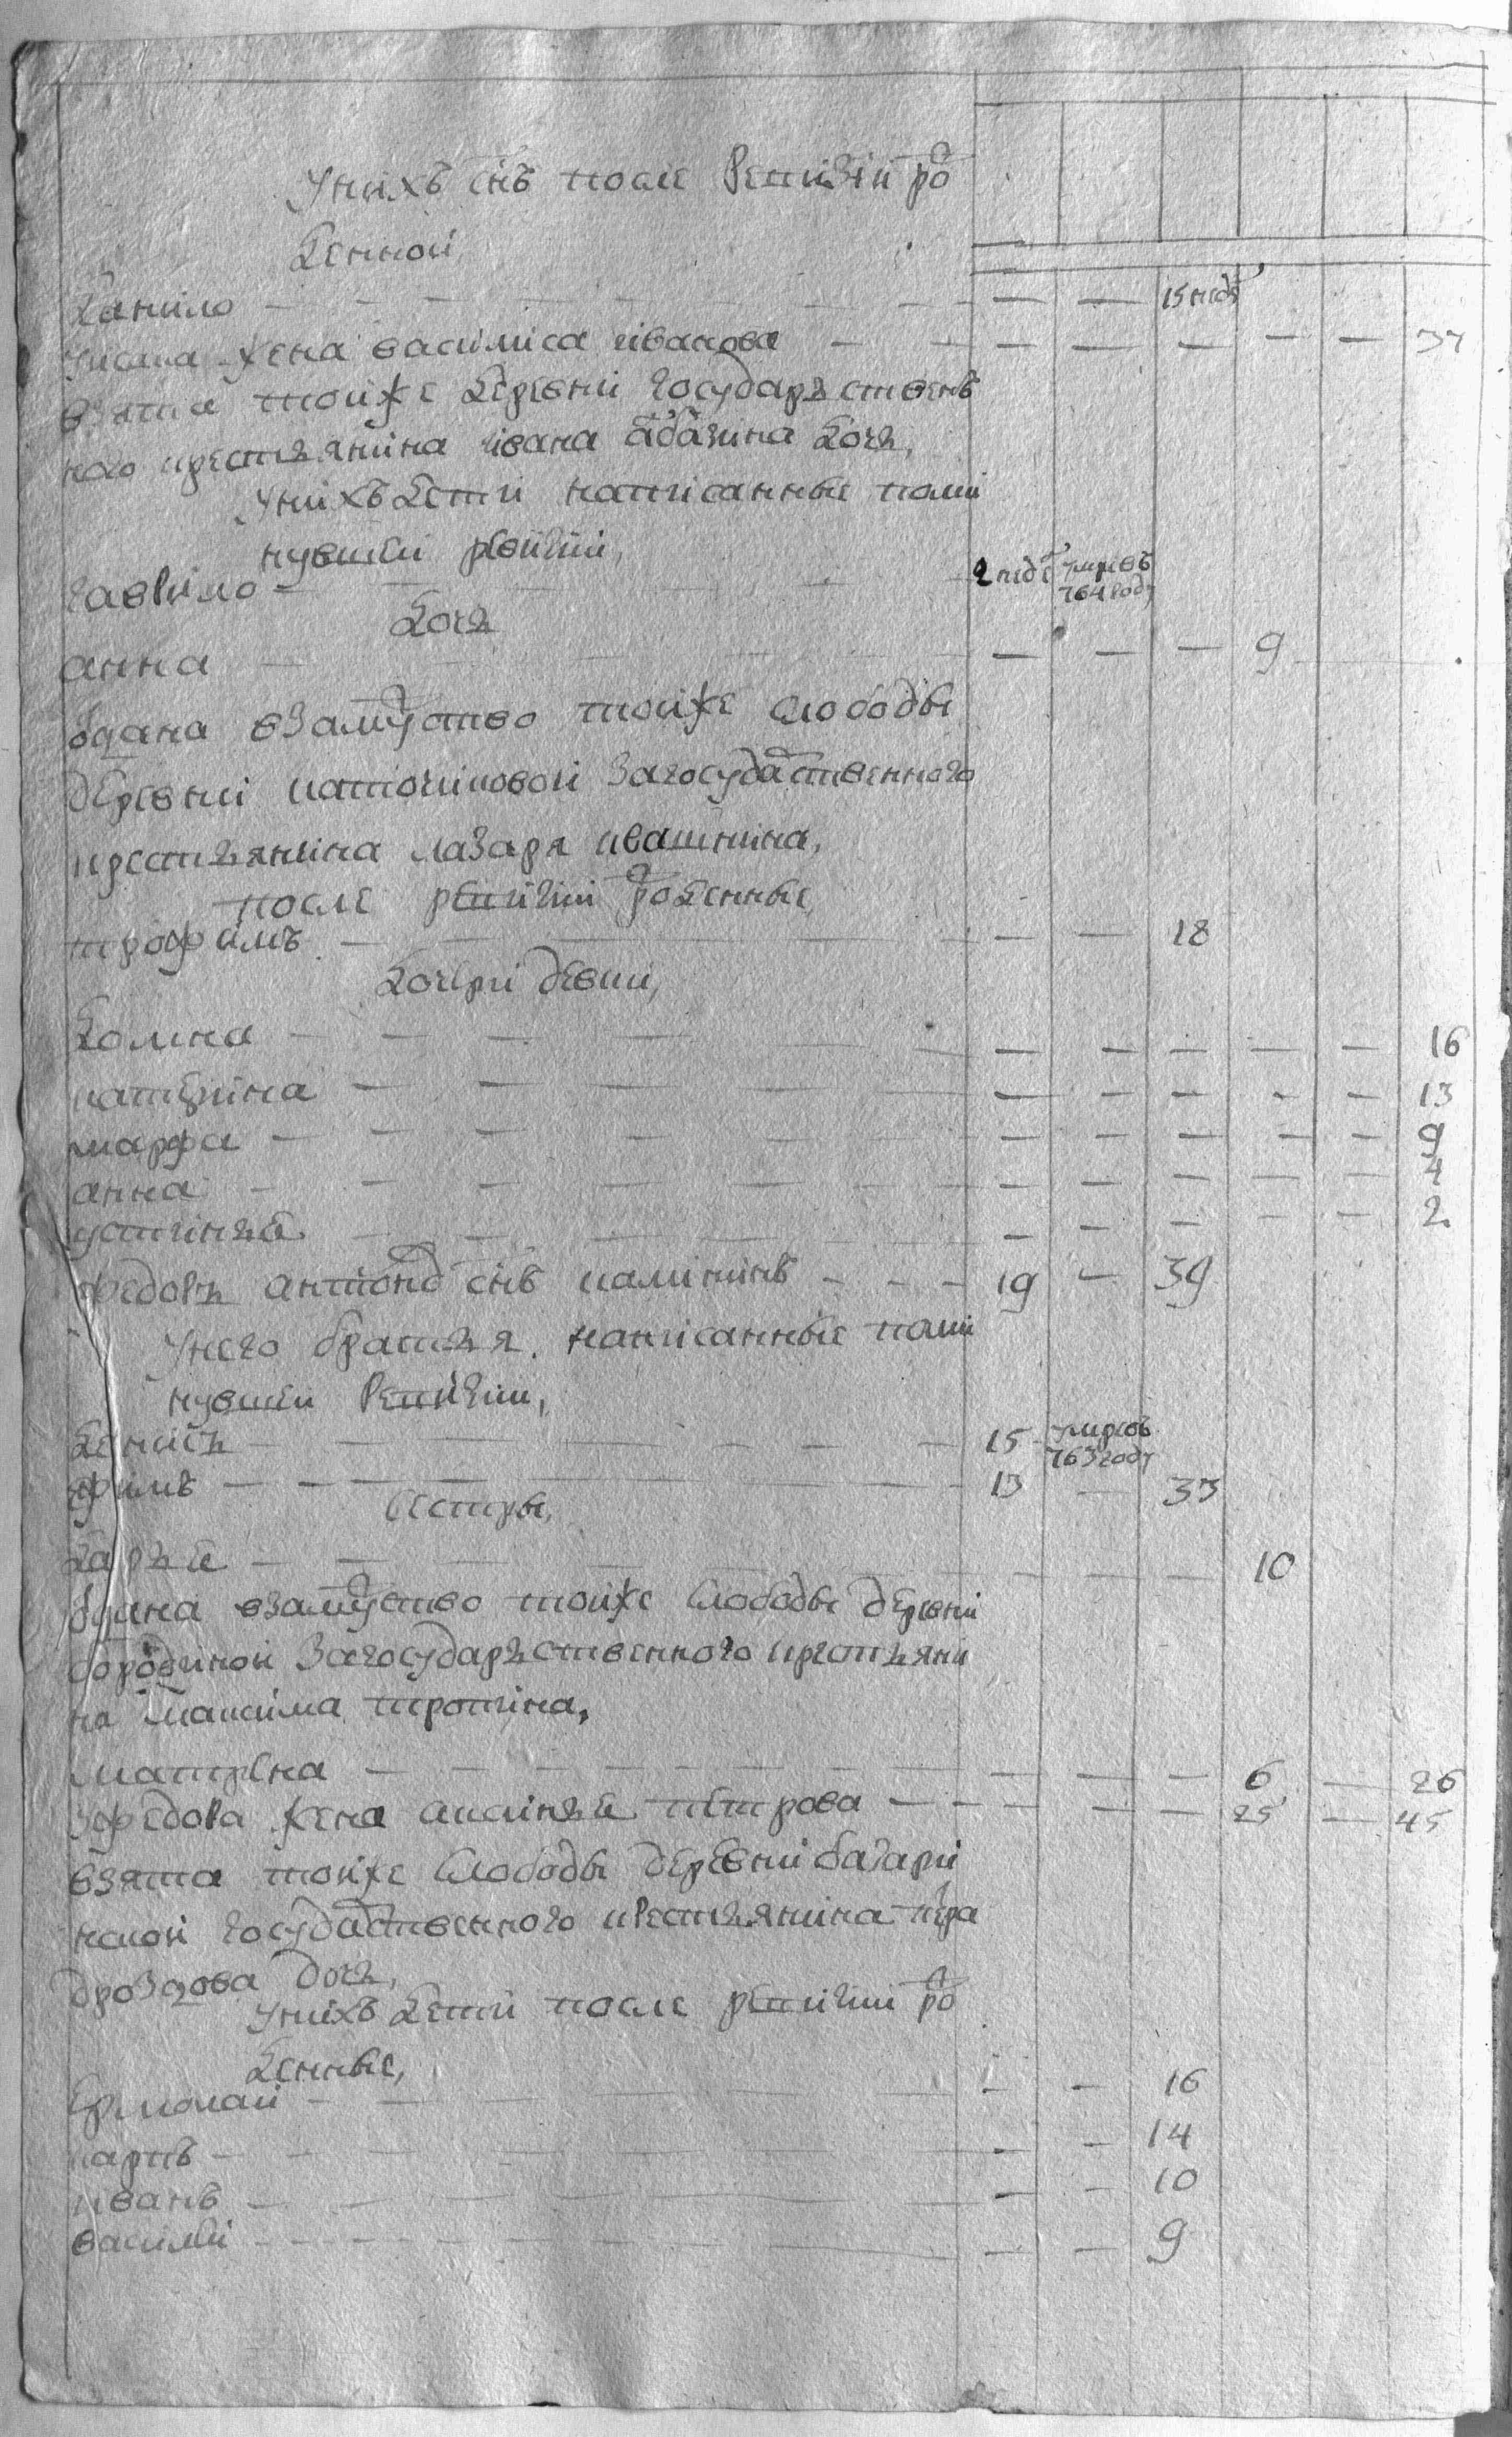 У них снъ после ревизiи ро
денной
Данило — — — 15 недѣ
Учисла жена василиса иванова — — — — — 37
взята тойже деревни государъственъ
ного крестьянина ивана абабина дочь,
У нихъ дети написанные поми
нувшей ревизии,
гаврило — 2 недѣ умревъ 764 году
дочь
анна — — — 9
Одана взамуство тойже слободы
деревни каточиковой за государственного
крестьянина лазаря квашнина,
после ревизии роденные
трофимъ — — 18
дочери девки,
домна — — — — — 16
катерина — — — — — 13
марфа — — — — — 9
анна — — — — — 4
устинья — — — — — 2
федоръ антоновъ снъ калининъ — 19 — 39
Унего братья написанные поми
нувшей Ревизии,
денисъ — 15 умревъ 763 году
ефимъ — 13 — 33
сестры,
дарья — — — 10
Одана взамуство тойже слободы деревни
бородиной за государъственного крестьяни
на максима тропина,
матрена — — — 6 — 26
У федора жена аксинья петрова — — — 25 — 45
взята тойже слободы деревни базари
нской государственного крестьянина петра
дроздова дочь,
У нихъ дети после ревизии ро
денные,
Ермолай — — 16
карпъ — — 14
иванъ — — 10
василей — — 9